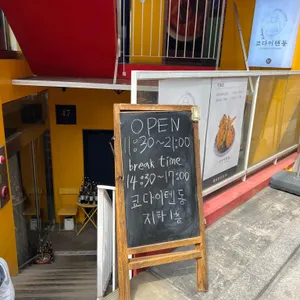 코다이텐동
47
OPEN
11:30~21:00
break time
14:30~17:00
코다이텐동
지하1층